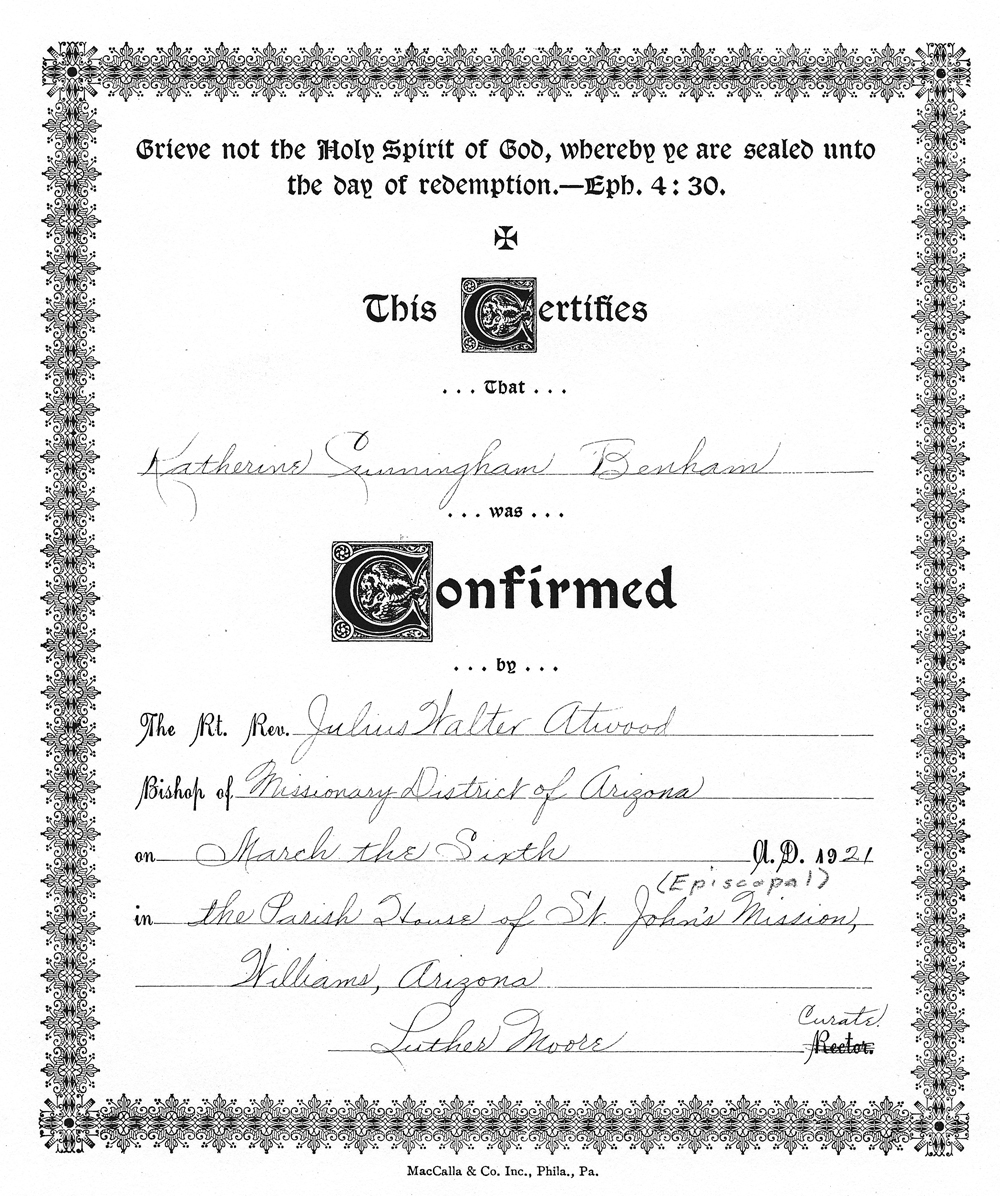 Grieve not the Holy Spirit of God, whereby ye are sealed unto
the day of redemption.—Eph. 4:30.
This Certifies
... That ...
Katherine Cunningham Benham
... was ...
Confirmed
... by ...
The Rt. Rev. Julius Walter Atwood
Bishop of Missionary District of Arizona
on March the Sixth A.D. 1921
(Episcopal)
in the Parish House of St. John's Mission,
Williams, Arizona
Curate.
Luther Moore Rector.
MacCalla & Co. Inc., Phila., Pa.